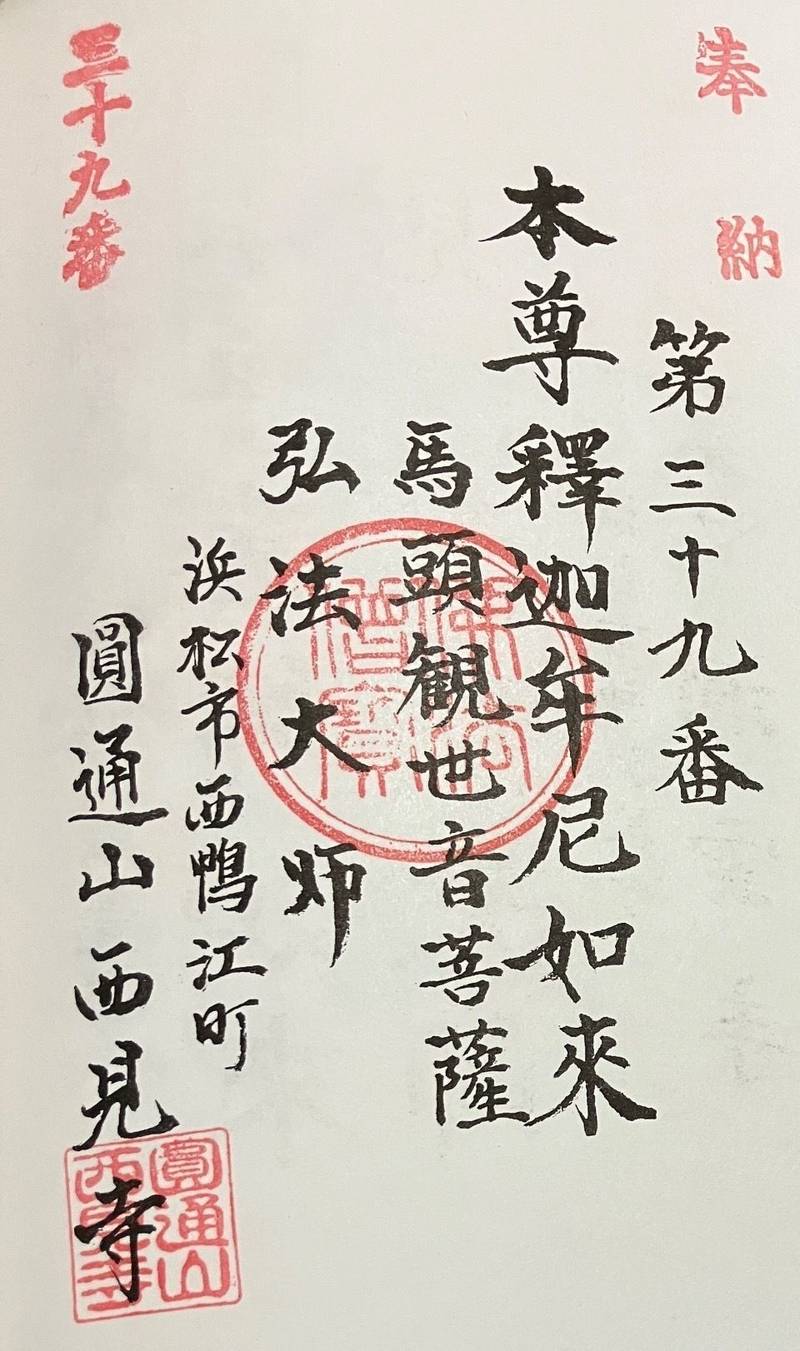 奉納
第三十九番
本尊釋迦牟尼如來
馬頭観世音菩薩
弘法大师
浜松市西鴨江町
圓通山西見寺
三十九番
佛法僧寳
圓通山西見寺